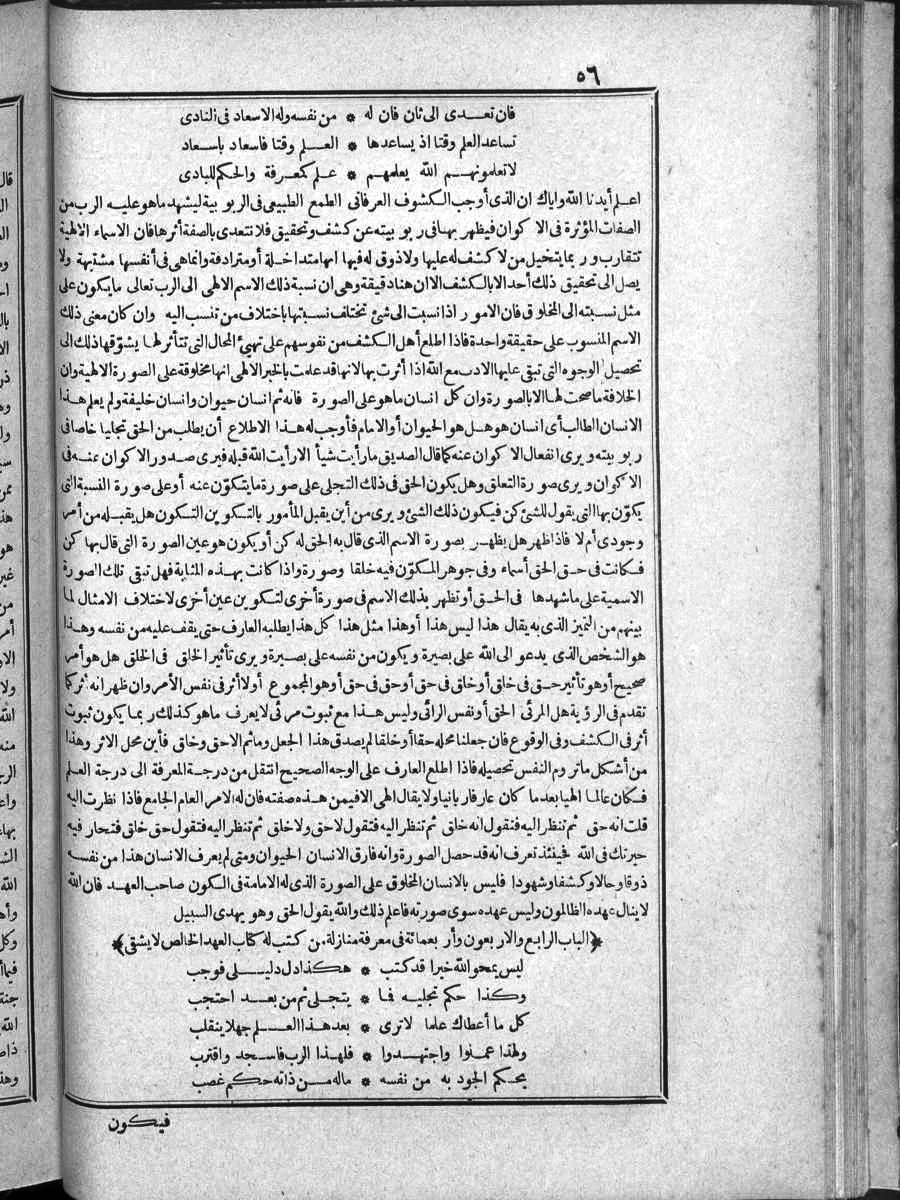 ٥٦
فان تعدى الى ثان فان له * من نفسه وله الاسعاد فى النادى
تساعد العلم وقتا اذ يساعدها * العلم وقتا فاسعاد باسعاد
لا تعلمونهم الله يعلمهم * علم كمعرفة والحكم للبادى
اعلم أيدنا الله واياك ان الذى أوجب الكشوف العرفانى الطمع الطبيعى فى الربوبية ليشهد ما هو عليه الرب من
الصفات المؤثرة فى الاكوان فيظهر بها فى ربوبيته عن كشف وتحقيق فلا نتعدى بالصفة أثرها فان الاسماء الالهية
تتقارب وربما يتخيل من لا كشف له عليها ولا ذوق له فيها انها متداخلة أو مترادفة وانما هى فى أنفسها مشتبهة ولا
يصل الى تحقيق ذلك أحد الا بالكشف الا ان هنا دقيقة وهى ان نسبة ذلك الاسم الالهى الى الرب تعالى ما يكون على
مثل نسبته الى المخلوق فان الامور اذا نسبت الى شئ تختلف نسبتها باختلاف من تنسب اليه وان كان معنى ذلك
الاسم المنسوب على حقيقة واحدة فاذا اطلع أهل الكشف من نفوسهم على تهيئ المحال التى تتأثر لها يشوّقها ذلك الى
تحصيل الوجوه التى تبقى عليها الادب مع الله اذا أثرت بها لانها قد علمت بالخبر الالهى انها مخلوقة على الصورة الالهية وان
الخلافة ما صحت لها الا بالصورة وان كل انسان ما هو على الصورة فانه ثم انسان حيوان وانسان خليفة ولم يعلم هذا
الانسان الطالب أى انسان هو هل هو الحيوان أو الامام فأوجب له هذا الاطلاع أن يطلب من الحق تجليا خاصا فى
ربوبيته ويرى انفعال الاكوان عنه كما قال الصديق ما رأيت شيأ الا رأيت الله قبله فيرى صدور الاكوان عنه فى
الاكوان ويرى صورة التعلق وهل يكون الحق فى ذلك التجلى على صورة ما يتكوّن عنه أو على صورة النسبة التى
يكوّن بها التى يقول للشئ كن فيكون ذلك الشئ ويرى من أين يقبل المأمور بالتكوين التكون هل يقبله من أمر
وجودى أم لا فاذا ظهر هل يظهر بصورة الاسم الذى قال به الحق له كن أو يكون هو عين الصورة التى قال بها كن
فكانت فى حق الحق أسماء وفى جوهر المكوّن فيه خلقا وصورة واذا كانت بهذه المثابة فهل تبقى تلك الصورة
الاسمية على ما شهدها فى الحق أو تظهر بذلك الاسم فى صورة أخرى لتكوين عين أخرى لاختلاف الامثال لما
بينهم من التميز الذى به يقال هذا ليس هذا أو هذا مثل هذا كل هذا يطلبه العارف حتى يقف عليه من نفسه وهذا
هو الشخص الذى يدعو الى الله على بصيرة ويكون من نفسه على بصيرة ويرى تأثير الخلق فى الخلق هل هو أمر
صحيح أو هو تأثير حق فى خلق أو خلق فى حق أو حق فى حق أو هو المجموع أو لا أثر فى نفس الأمر وان ظهر انه أثر كما
تقدم فى الرؤية هل المرئى الحق أو نفس الرائى وليس هذا مع ثبوت مرئى لا يعرف ما هو كذلك ربما يكون ثبوت
أثر فى الكشف وفى الوقوع فان جعلنا محله حقا أو خلقا لم يصدق هذا الجعل وما ثم الا حق وخلق فأين محل الاثر وهذا
من أشكل ما تروم النفس تحصيله فاذا اطلع العارف على الوجه الصحيح انتقل من درجة المعرفة الى درجة العلم
فكان عالما الهيا بعد ما كان عارفا ربانيا ولا يقال الهى الا فيمن هذه صفته فان له الامر العام الجامع فاذا نظرت اليه
قلت انه حق ثم تنظر اليه فتقول انه خلق ثم تنظر اليه فتقول لا حق ولا خلق ثم تنظر اليه فتقول حق خلق فتحار فيه
حيرتك فى الله فحينئذ تعرف انه قد حصل الصورة وانه فارق الانسان الحيوان ومتى لم يعرف الانسان هذا من نفسه
ذوقا وحالا وكشفا وشهودا فليس بالانسان المخلوق على الصورة الذى له الامامة فى الكون صاحب العهد فان الله
لا ينال عهده الظالمون وليس عهده سوى صورته فاعلم ذلك والله يقول الحق وهو يهدى السبيل
﴿الباب الرابع والاربعون وأربعمائة فى معرفة منازلة من كتب له كتاب العهد الخالص لا يشقى﴾
ليس يمحو الله خيرا قد كتب * هكذا دل دليلى فوجب
وكذا حكم تجليه فما * يتجلى ثم من بعد احتجب
كل ما أعطاك علما لا ترى * بعد هذا العلم جهلا ينقلب
ولهذا عملوا واجتهدوا * فلهذا الرب فاسجد واقترب
يحكم الجود به من نفسه * ماله من ذاته حكم غصب
فيكون